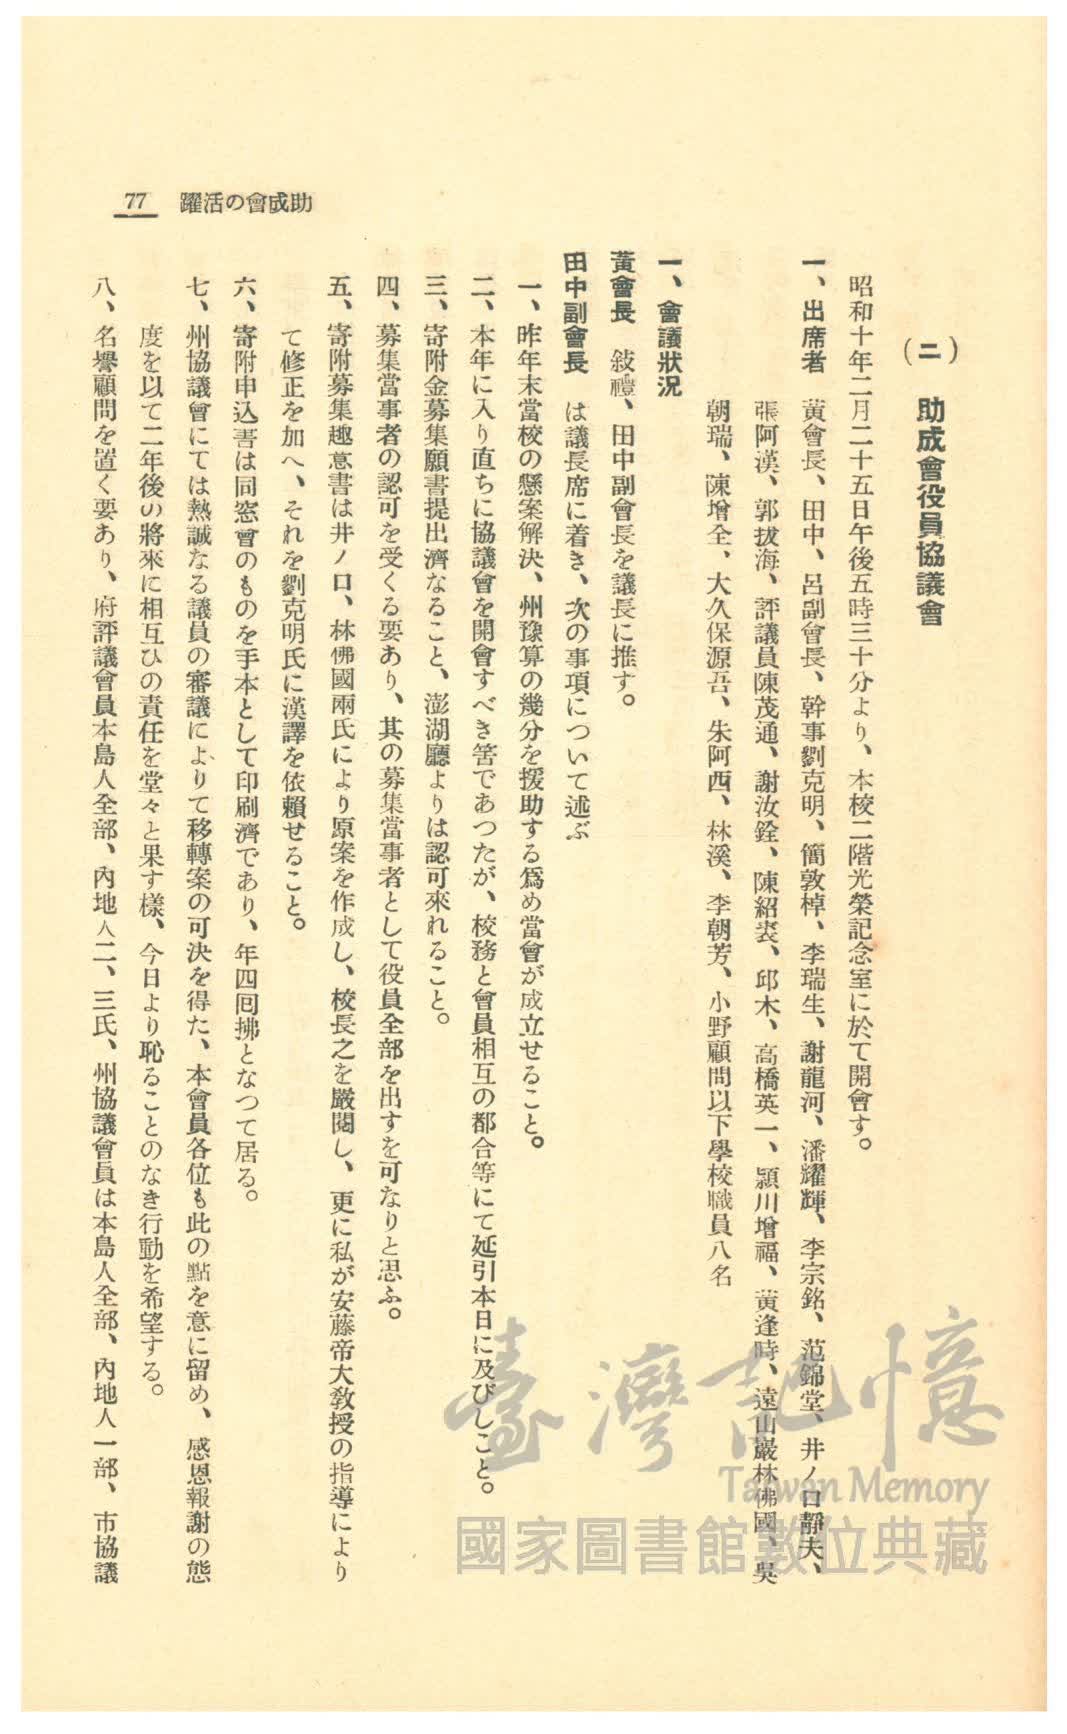 77 助成會の活躍
(二) 助成會役員協議會
昭和十年二月二十五日午後五時三十分より、本校二階光榮記念室に於て開會す。
一、出席者 黃會長、田中、呂副會長、幹事劉克明、簡敦棹、李瑞生、謝龍河、潘耀輝、李宗銘、范錦堂、井ノ口靜夫、
張阿漢、郭拔海、評議員陳茂通、謝汝銓、陳紹裘、邱木、高橋英一、潁川增福、黃逢時、遠山巖林佛國、吳
朝瑞、陳增全、大久保源吾、朱阿西、林溪、李朝芳、小野顧問以下學校職員八名
一、會議狀況
黃會長 敍禮、田中副會長を議長に推す。
田中副會長 は議長席に着き、次の事項について述ぶ
一、昨年末當校の懸案解決、州豫算の幾分を援助する爲め當會が成立せること。
二、本年に入り直ちに協議會を開會すべき筈であつたが、校務と會員相互の都合等にて延引本日に及びしこと。
三、寄附金募集願書提出濟なること、澎湖廳よりは認可來れること。
四、募集當事者の認可を受くる要あり、其の募集當事者として役員全部を出すを可なりと思ふ。
五、寄附募集趣意書は井ノ口、林佛國兩氏により原案を作成し、校長之を嚴閱し、更に私が安藤帝大敎授の指導により
て修正を加へ、それを劉克明氏に漢譯を依賴せること。
六、寄附申込書は同窓會のものを手本として印刷濟であり、年四回拂となつて居る。
七、州協議會にては熱誠なる議員の審議によりて移轉案の可決を得た、本會員各位も此の點を意に留め、感恩報謝の態
度を以て二年後の將來に相互ひの責任を堂々と果す樣、今日より恥ることのなき行動を希望する。
八、名譽顧問を置く要あり、府評議會員本島人全部、內地人二、三氏、州協議會員は本島人全部、內地人一部、市協議
臺灣記憶
Taiwan Memory
國家圖書館數位典藏